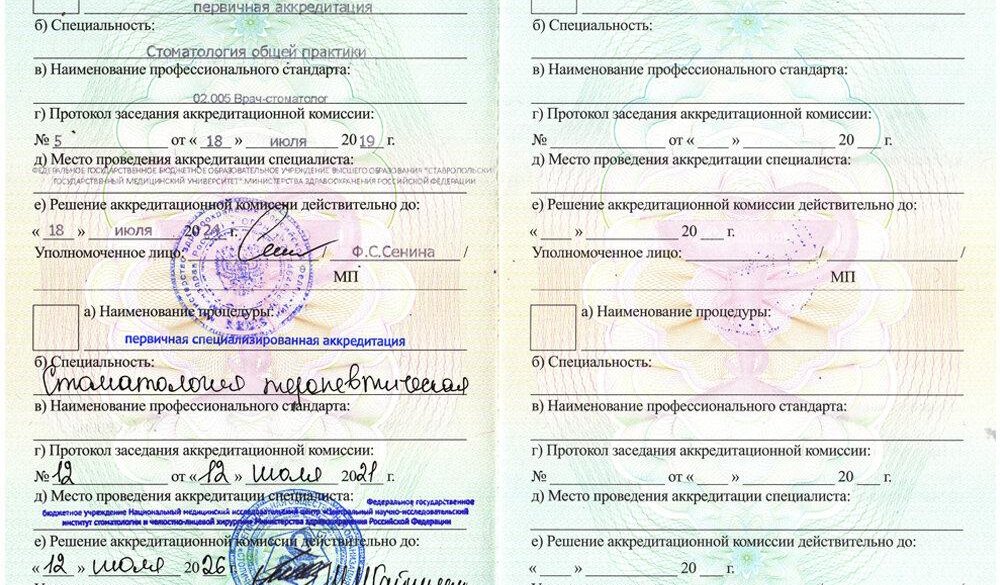 первичная аккредитация
б) Специальность:
Стоматология общей практики
в) Наименование профессионального стандарта:
02.005 Врач-стоматолог
г) Протокол заседания аккредитационной комиссии:
№ 5 от « 18 » июля 2019 г.
д) Место проведения аккредитации специалиста:
ФЕДЕРАЛЬНОЕ ГОСУДАРСТВЕННОЕ БЮДЖЕТНОЕ ОБРАЗОВАТЕЛЬНОЕ УЧРЕЖДЕНИЕ ВЫСШЕГО ОБРАЗОВАНИЯ "СТАВРОПОЛЬСКИЙ
ГОСУДАРСТВЕННЫЙ МЕДИЦИНСКИЙ УНИВЕРСИТЕТ" МИНИСТЕРСТВА ЗДРАВООХРАНЕНИЯ РОССИЙСКОЙ ФЕДЕРАЦИИ
е) Решение аккредитационной комиссии действительно до:
« 18 » июля 2024 г.
Уполномоченное лицо: / Ф.С.Сенина /
МП
а) Наименование процедуры:
первичная специализированная аккредитация
б) Специальность:
Стоматология терапевтическая
в) Наименование профессионального стандарта:
г) Протокол заседания аккредитационной комиссии:
№ 12 от « 12 » июля 2021 г.
д) Место проведения аккредитации специалиста:
Федеральное государственное
бюджетное учреждение Национальный медицинский исследовательский центр «Центральный научно-исследовательский
институт стоматологии и челюстно-лицевой хирургии» Министерства здравоохранения Российской Федерации
е) Решение аккредитационной комиссии действительно до:
« 12 » июля 2026 г.
б) Специальность:
в) Наименование профессионального стандарта:
г) Протокол заседания аккредитационной комиссии:
№ от « » 20 г.
д) Место проведения аккредитации специалиста:
е) Решение аккредитационной комиссии действительно до:
« » 20 г.
Уполномоченное лицо: / /
МП
а) Наименование процедуры:
б) Специальность:
в) Наименование профессионального стандарта:
г) Протокол заседания аккредитационной комиссии:
№ от « » 20 г.
д) Место проведения аккредитации специалиста:
е) Решение аккредитационной комиссии действительно до:
« » 20 г.